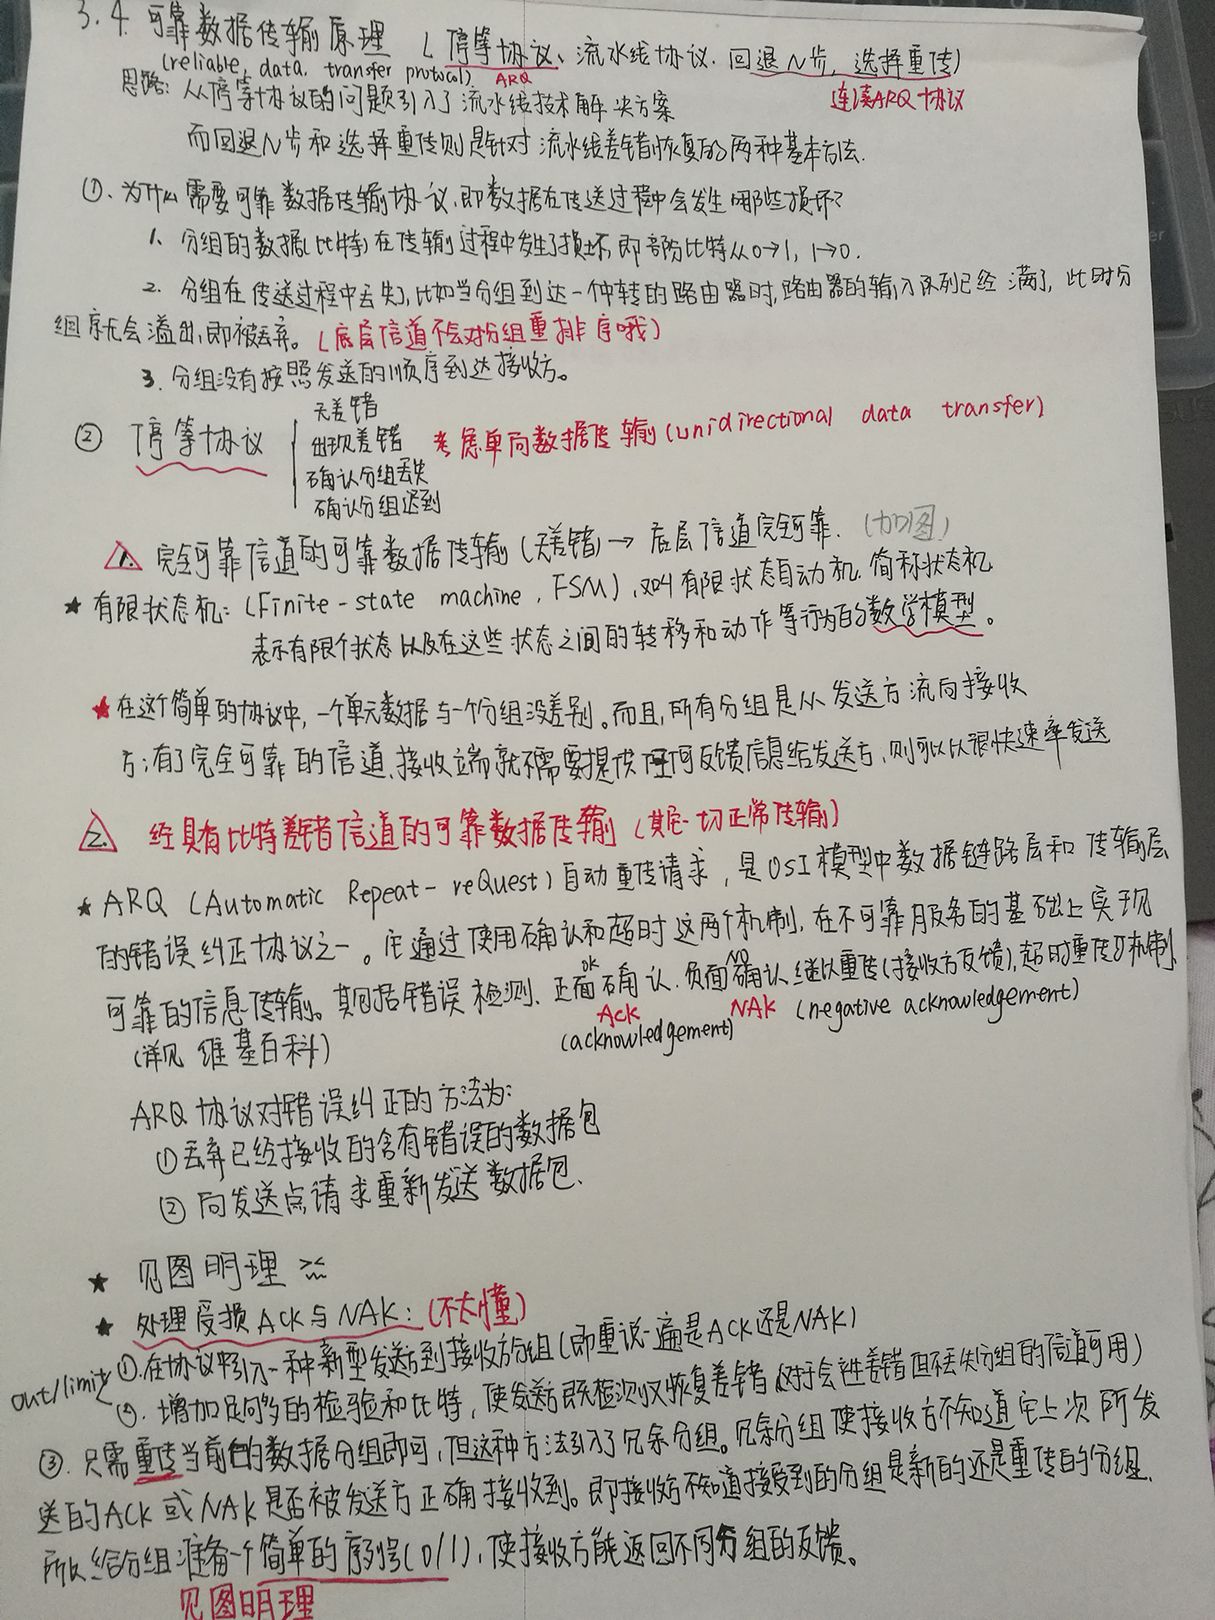 3.4. 可靠数据传输原理 (停等协议、流水线协议.回退N步, 选择重传)
(reliable, data. transfer protocal) ARQ
连续ARQ协议
思路: 从停等协议的问题引入了流水线技术解决方案
而回退N步和选择重传则是针对流水线差错恢复的两种基本方法.
①. 为什么需要可靠数据传输协议,即数据在传送过程中会发生哪些损坏?
1. 分组的数据(比特)在传输过程中发生了损坏,即部份比特从0→1, 1→0.
2. 分组在传送过程中丢失,比如当分组到达一中转的路由器时,路由器的输入队列已经满了,此时分
组就会溢出,即被丢弃。(底层信道不会对分组重排序哦)
3. 分组没有按照发送的顺序到达接收方。
② 停等协议
无差错
出现差错
确认分组丢失
确认分组迟到
考虑单向数据传输(unidirectional data transfer)
1. 完全可靠信道的可靠数据传输(无差错)→ 底层信道完全可靠. (加图)
★ 有限状态机: (Finite-state machine, FSM), 又叫有限状态自动机.简称状态机
表示有限个状态以及在这些状态之间的转移和动作等行为的数学模型。
★ 在这个简单的协议中,一个单元数据与一个分组没差别。而且,所有分组是从发送方流向接收
方;有了完全可靠的信道,接收端就不需要提供任何反馈信息给发送方,则可以以很快速率发送
2. 经具有比特差错信道的可靠数据传输 (其它一切正常传输)
★ ARQ (Automatic Repeat-reQuest)自动重传请求,是OSI模型中数据链路层和传输层
的错误纠正协议之一。它通过使用确认和超时这两个机制,在不可靠服务的基础上实现
可靠的信息传输。其包括错误检测、正面确认.负面确认继以重传(接收方反馈),超时重传等机制.
OK NO
Ack NAK (negative acknowledgement)
(acknowledgement)
(详见维基百科)
ARQ协议对错误纠正的方法为:
①丢弃已经接收的含有错误的数据包
② 向发送点请求重新发送数据包.
★ 见图明理
★ 处理受损ACK与NAK: (不太懂)
①.在协议中引入一种新型发送方到接收方分组(即重说一遍是ACK还是NAK)
out/limit
②. 增加足够多的检验和比特,使发送方既检测又恢复差错(对于会产生差错但不丢失分组的信道可用)
③. 只需重传当前的数据分组即可,但这种方法引入了冗余分组。冗余分组使接收方不知道它上次所发
送的ACK或NAK是否被发送方正确接收到。即接收方不知道接受到的分组是新的还是重传的分组.
所以给分组准备一个简单的序列号(0/1),使接收方能返回不同分组的反馈。
见图明理